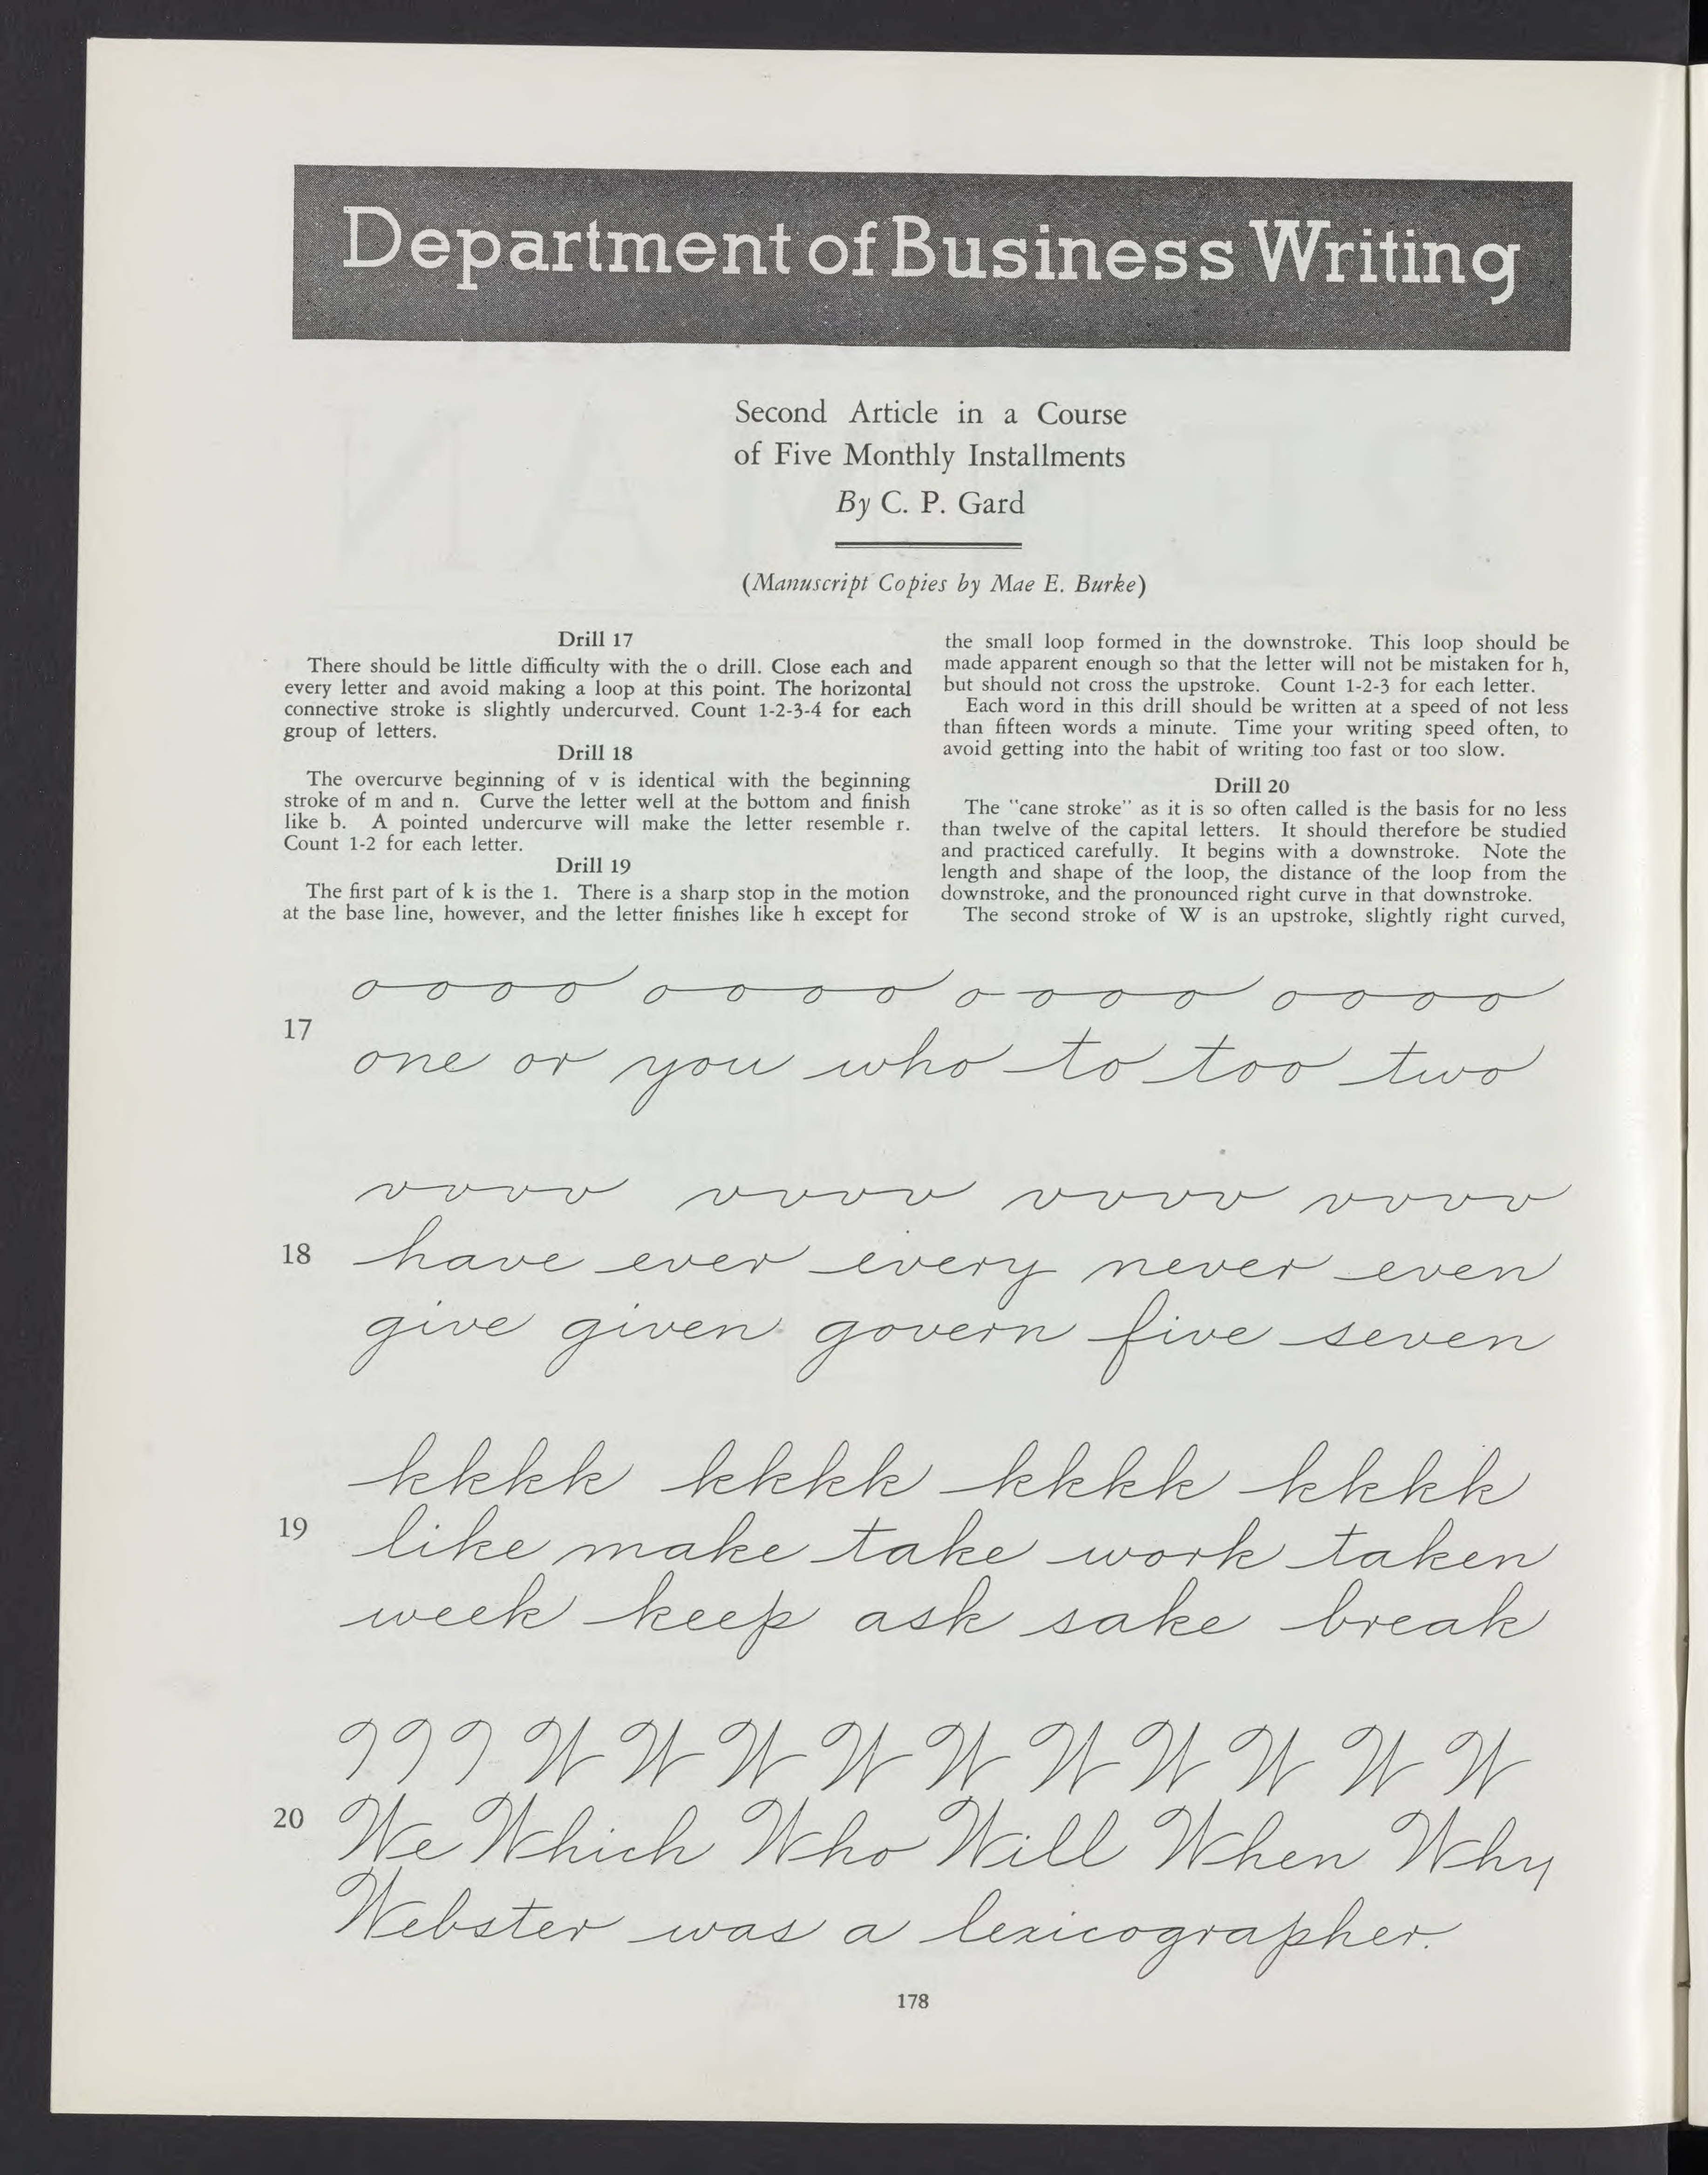 Department of Business Writing
Second Article in a Course
of Five Monthly Installments
By C. P. Gard
(Manuscript Copies by Mae E. Burke)
Drill 17
There should be little difficulty with the o drill. Close each and
every letter and avoid making a loop at this point. The horizontal
connective stroke is slightly undercurved. Count 1-2-3-4 for each
group of letters.
Drill 18
The overcurve beginning of v is identical with the beginning
stroke of m and n. Curve the letter well at the bottom and finish
like b. A pointed undercurve will make the letter resemble r.
Count 1-2 for each letter.
Drill 19
The first part of k is the 1. There is a sharp stop in the motion
at the base line, however, and the letter finishes like h except for
the small loop formed in the downstroke. This loop should be
made apparent enough so that the letter will not be mistaken for h,
but should not cross the upstroke. Count 1-2-3 for each letter.
Each word in this drill should be written at a speed of not less
than fifteen words a minute. Time your writing speed often, to
avoid getting into the habit of writing too fast or too slow.
Drill 20
The "cane stroke" as it is so often called is the basis for no less
than twelve of the capital letters. It should therefore be studied
and practiced carefully. It begins with a downstroke. Note the
length and shape of the loop, the distance of the loop from the
downstroke, and the pronounced right curve in that downstroke.
The second stroke of W is an upstroke, slightly right curved,
oooo oooo oooo oooo
17
one or you who to too two
vvvv vvvv vvvv vvvv
18 have ever every never even
give given govern five seven
kkkk kkkk kkkk kkkk
19
like make take work taken
week keep ask sake break
W W W W W W W W W W
20 We Which Who Will When Why
Webster was a lexicographer.
178